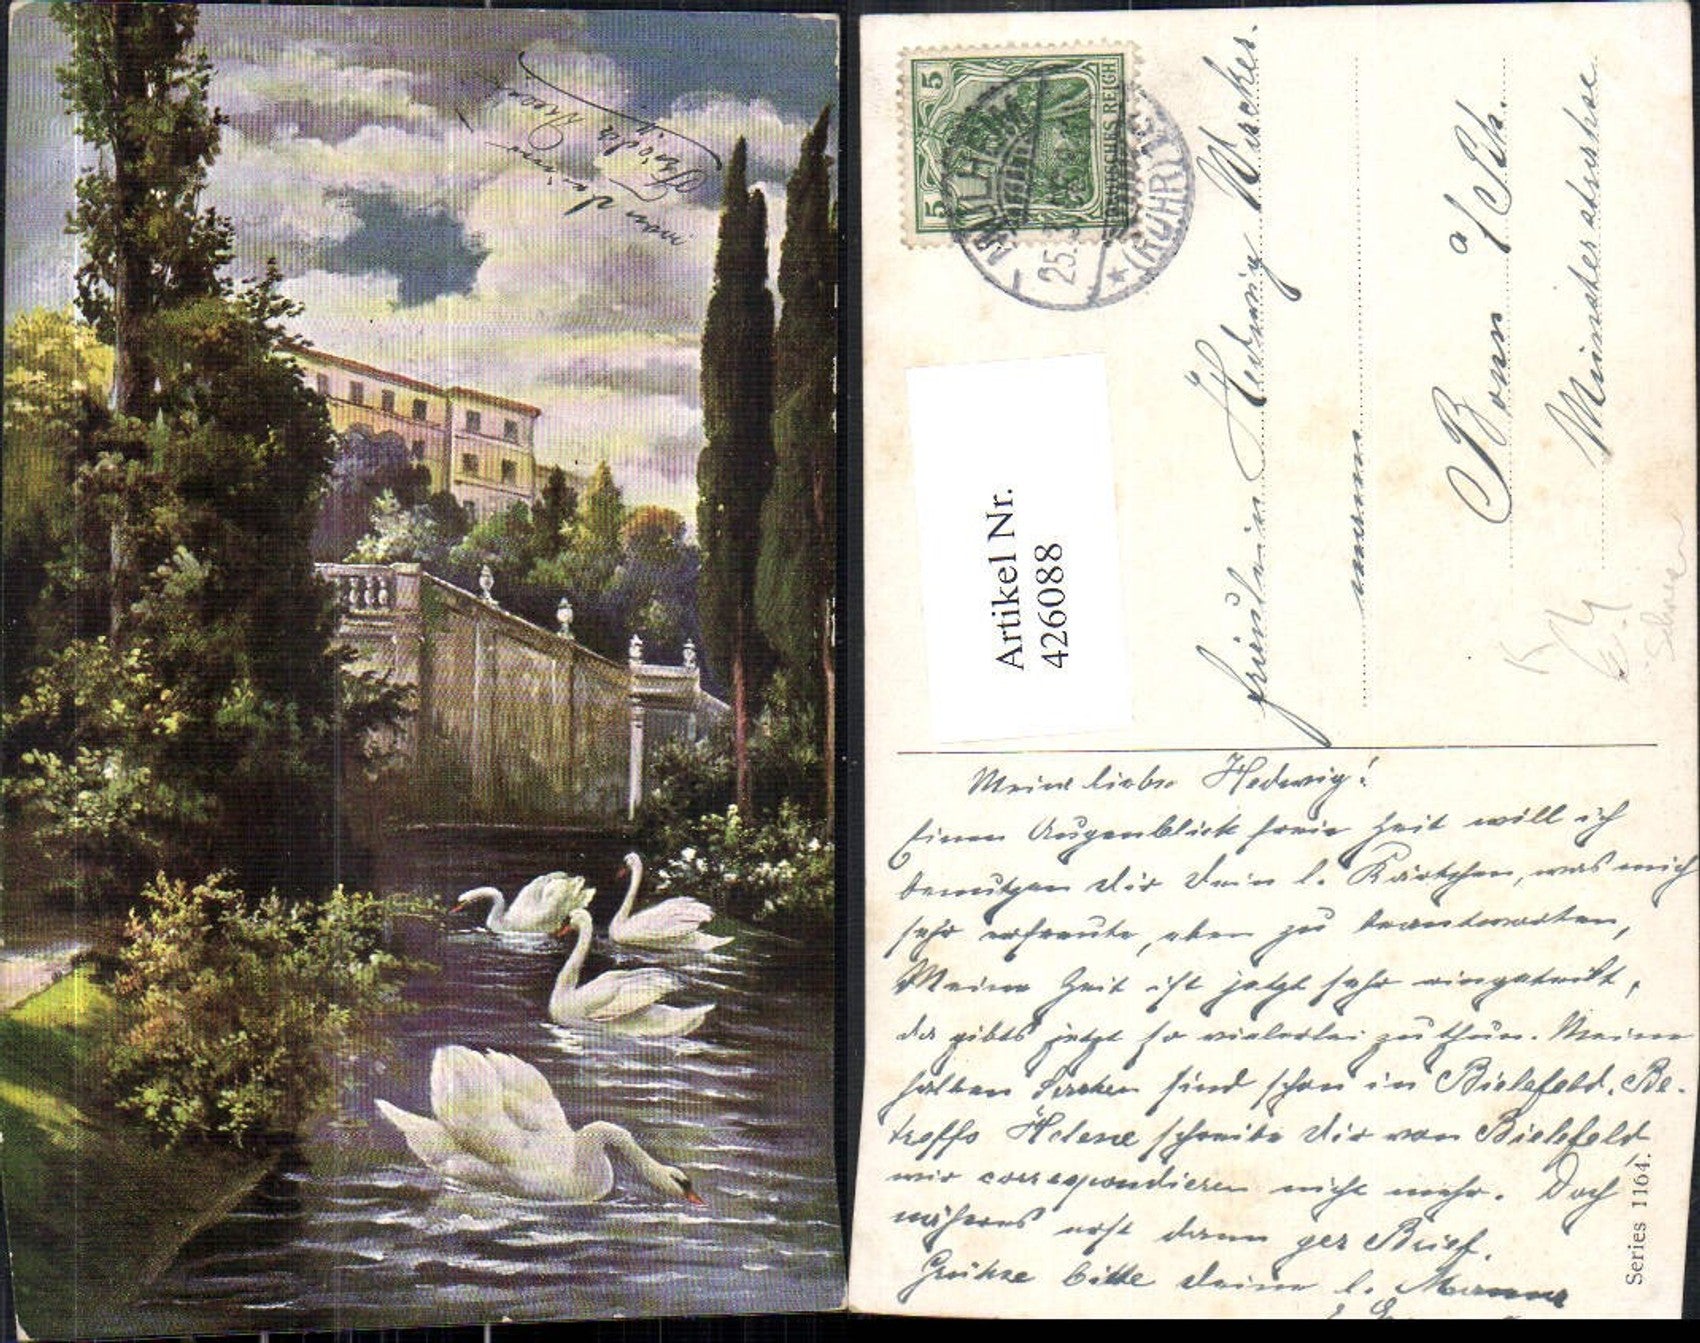 von
Deine
Frieda
5
5
DEUTSCHES REICH
MÜLHEIM
(RUHR) 1
25.
Artikel Nr.
426088
Fräulein Hedwig Wackes.
Bonn a/Rh.
Münsterstrasse
Meine liebe Hedwig!
Einen Augenblick freie Zeit will ich
benutzen dir Dein l. Kärtchen, was mich
sehr erfreute, eben zu beantworten,
Meine Zeit ist jetzt sehr eingeteilt,
da gibts jetzt so vielerlei zu thun. Meine
sind schon in Bielefeld. Be-
treffs Helene schreibe dir von Bielefeld
wir correspondieren nicht mehr. Doch
näheres erst dann per Brief.
Grüsse bitte Deine l. Mama
Series 1164.